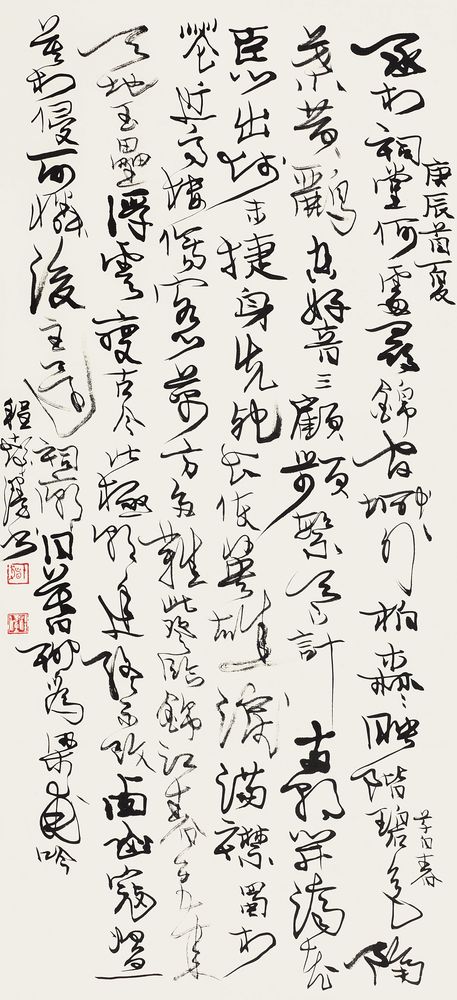 庚辰首夏
丞相祠堂何處尋錦官城外柏森森映階碧色隔
草自春
葉黄鸝空好音三顧頻繁天下計兩朝開濟老
臣心出師未捷身先死長使英雄淚滿襟蜀相
花近高樓傷客心萬方多難此登臨錦江春色來
天地玉壘浮雲變古今北極朝廷終不改西山寇盜
莫相侵可憐後主還祠廟日暮聊為梁甫吟